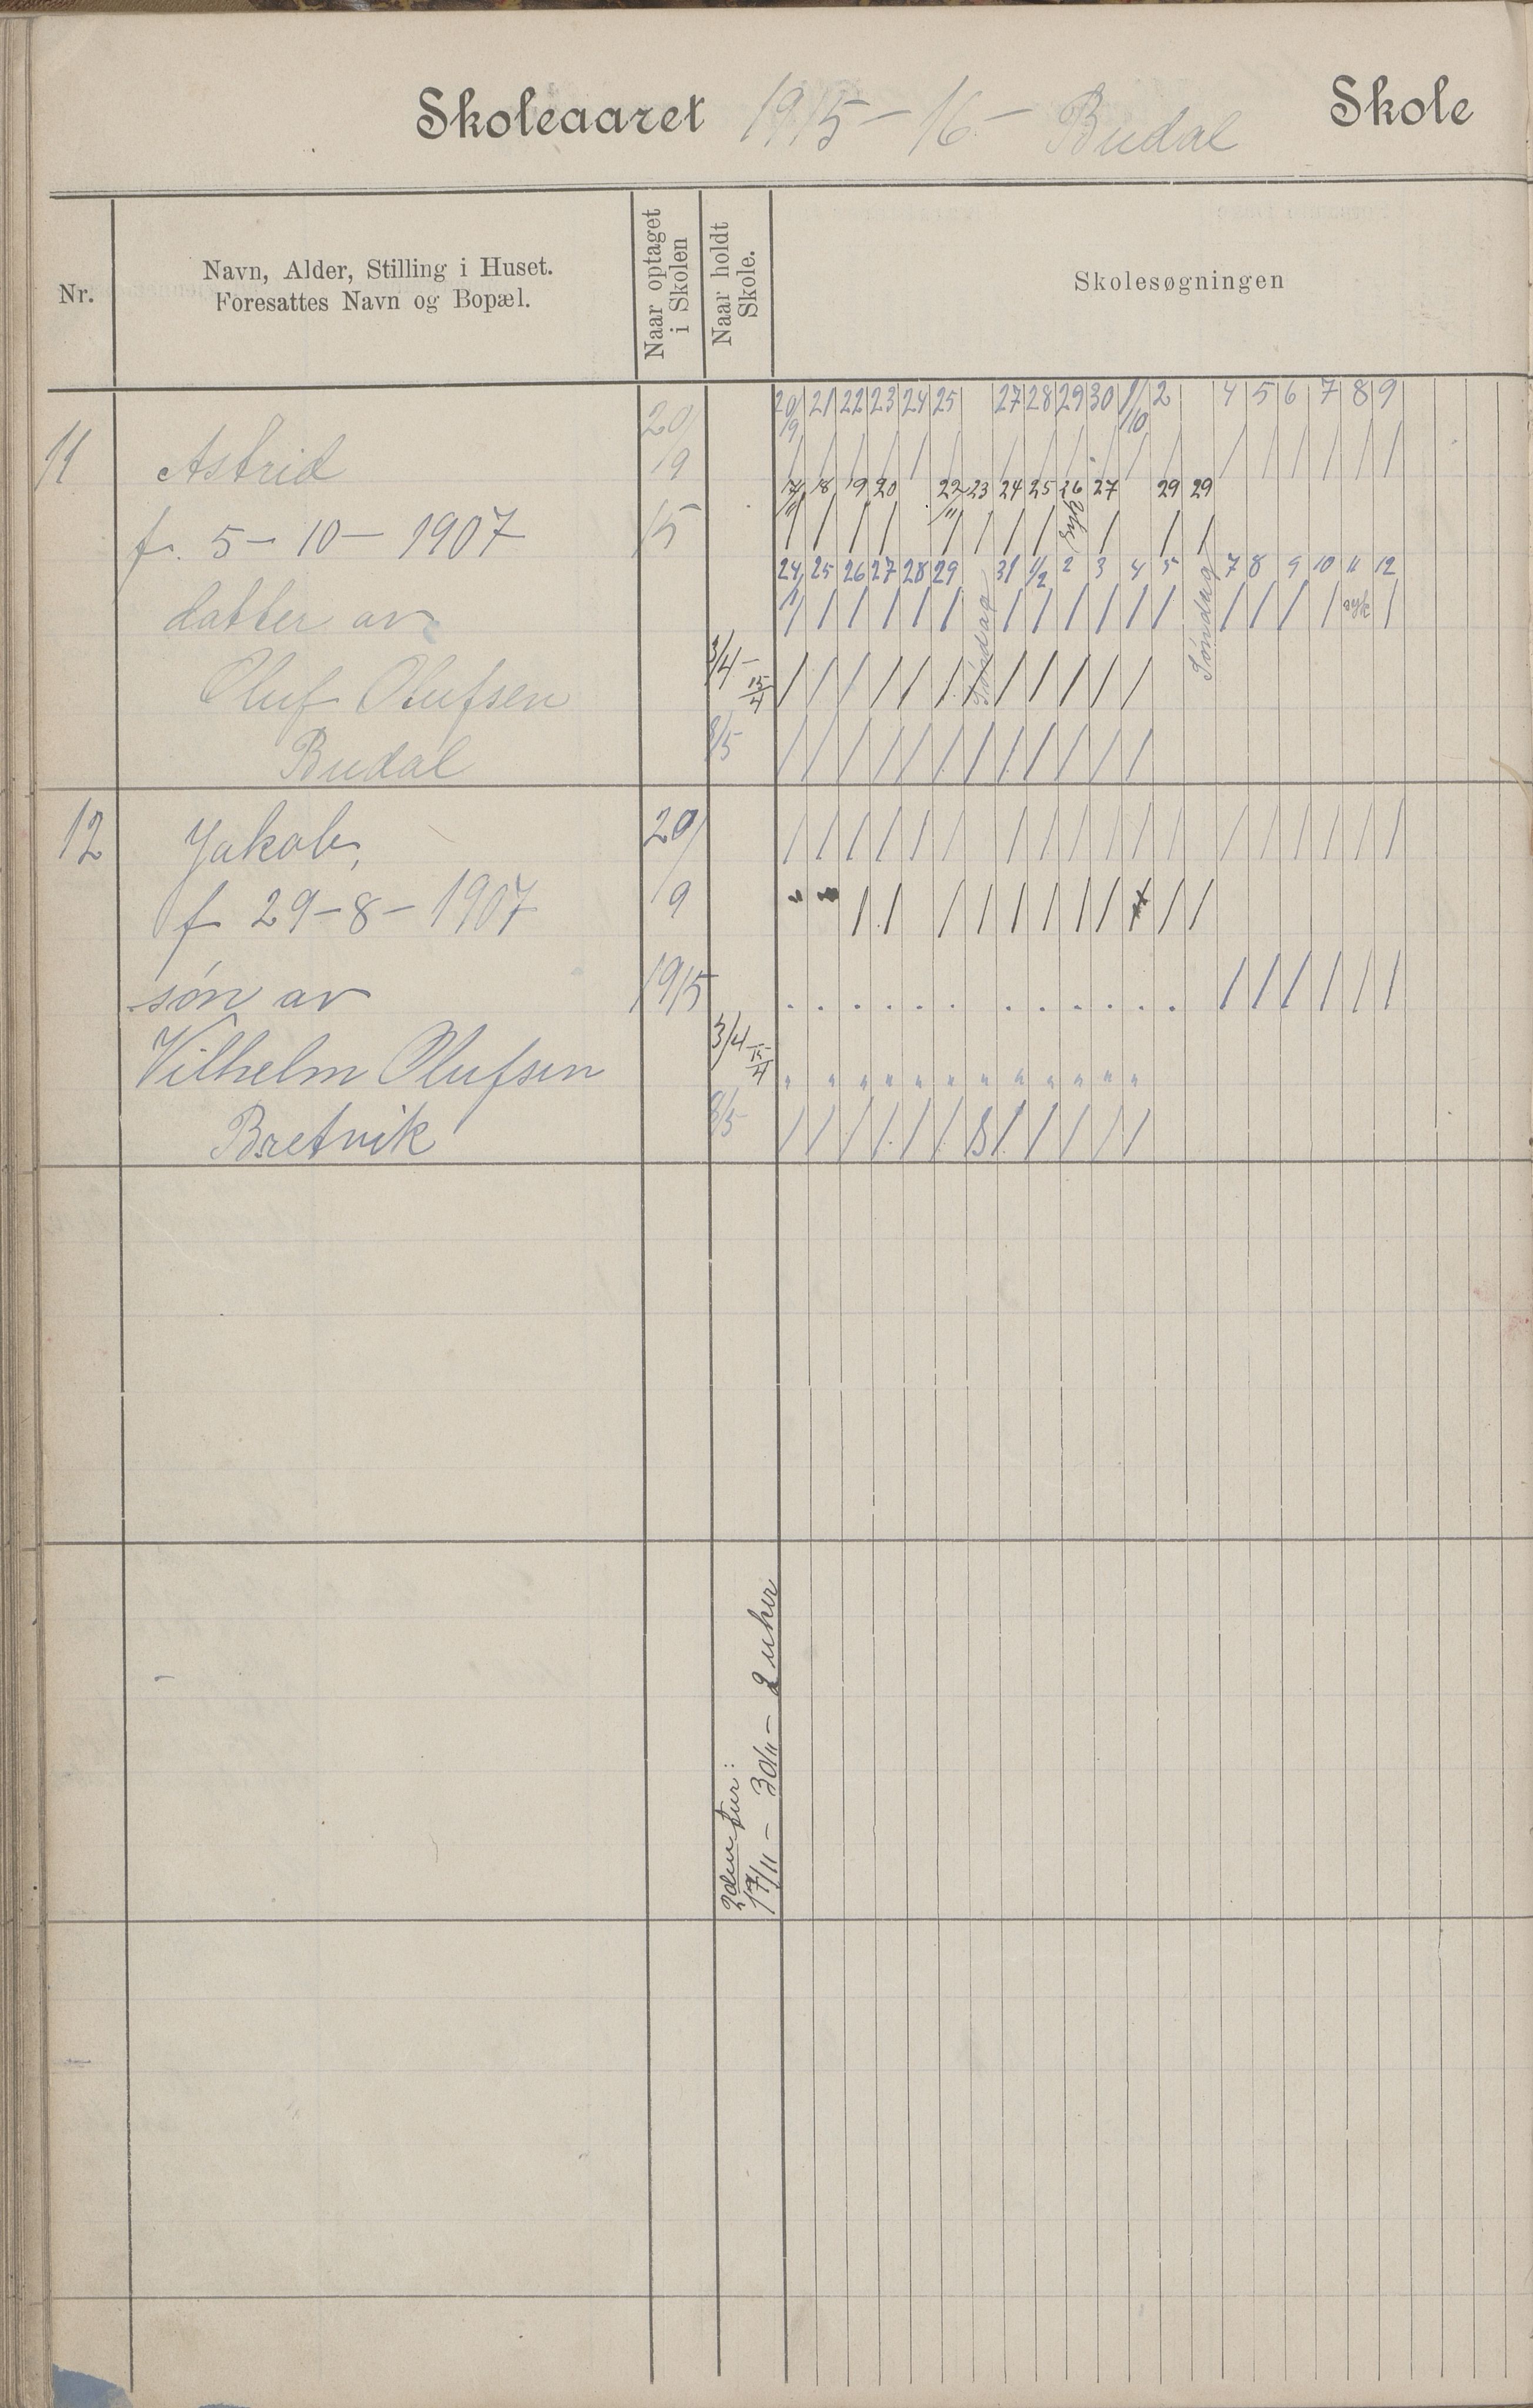 Skoleaaret 1915-16- Budal Skole
Nr.
Navn, Alder, Stilling i Huset.
Foresattes Navn og Bopæl.
Naar optaget
i Skolen
Naar holdt
Skole.
Skolesøgningen
20/9 21 22 23 24 25 27 28 29 30 1/10 2 4 5 6 7 8 9
11 Astrid 20/9 / / / / / / / / / / / / / / / / / /
17/11 18 19 20 22/11 23 24 25 26 27 29 29
f. 5-10-1907 15 / / / / / / / / syk / / /
24/1 25 26 27 28 29 Søndag 31 1/2 2 3 4 5 Søndag 7 8 9 10 11 12
datter av / / / / / / / / / / / / / / / / syk /
Oluf Olufsen 3/4 - 15/4 / / / / / / / / / / / /
Budal 8/5 / / / / / / / / / / / /
12 Jakob, 20/ / / / / / / / / / / / / / / / / / /
f 29-8-1907 9 " " / / / / / / / / / /
søn av 1915 . . . . . . . . . . . . / / / / / /
Vilhelm Olufsen 3/4 15/4 " " " " " " " " " " " "
Bretvik 8/5 / / / / / / / / / / / /
2den tur:
17/11 - 30/11 - 2 uker